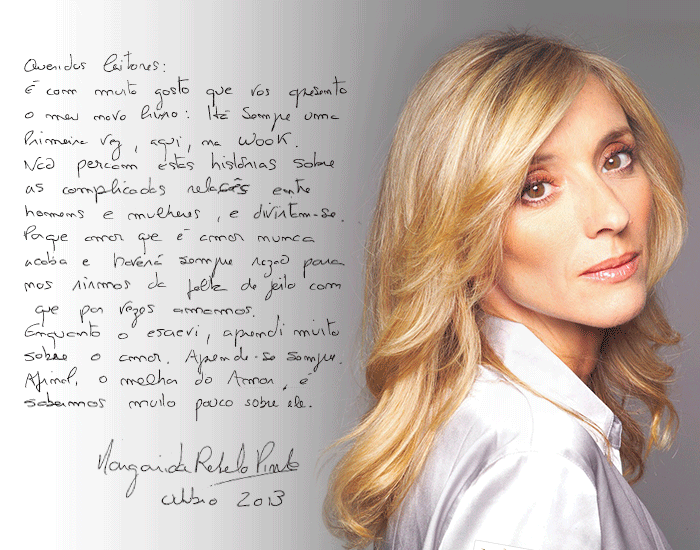 Queridos leitores:
É com muito gosto que vos apresento
o meu novo livro: Há Sempre uma
Primeira Vez, aqui, na WOOK.
Não percam estas histórias sobre
as complicadas relações entre
homens e mulheres, e divirtam-se.
Porque amor que é amor nunca
acaba e haverá sempre razão para
nos rirmos da falta de jeito com
que por vezes amamos.
Enquanto o escrevi, aprendi muito
sobre o amor. Aprende-se sempre.
Afinal, o melhor do Amor, é
sabermos muito pouco sobre ele.
Margarida Rebelo Pinto
outubro 2013